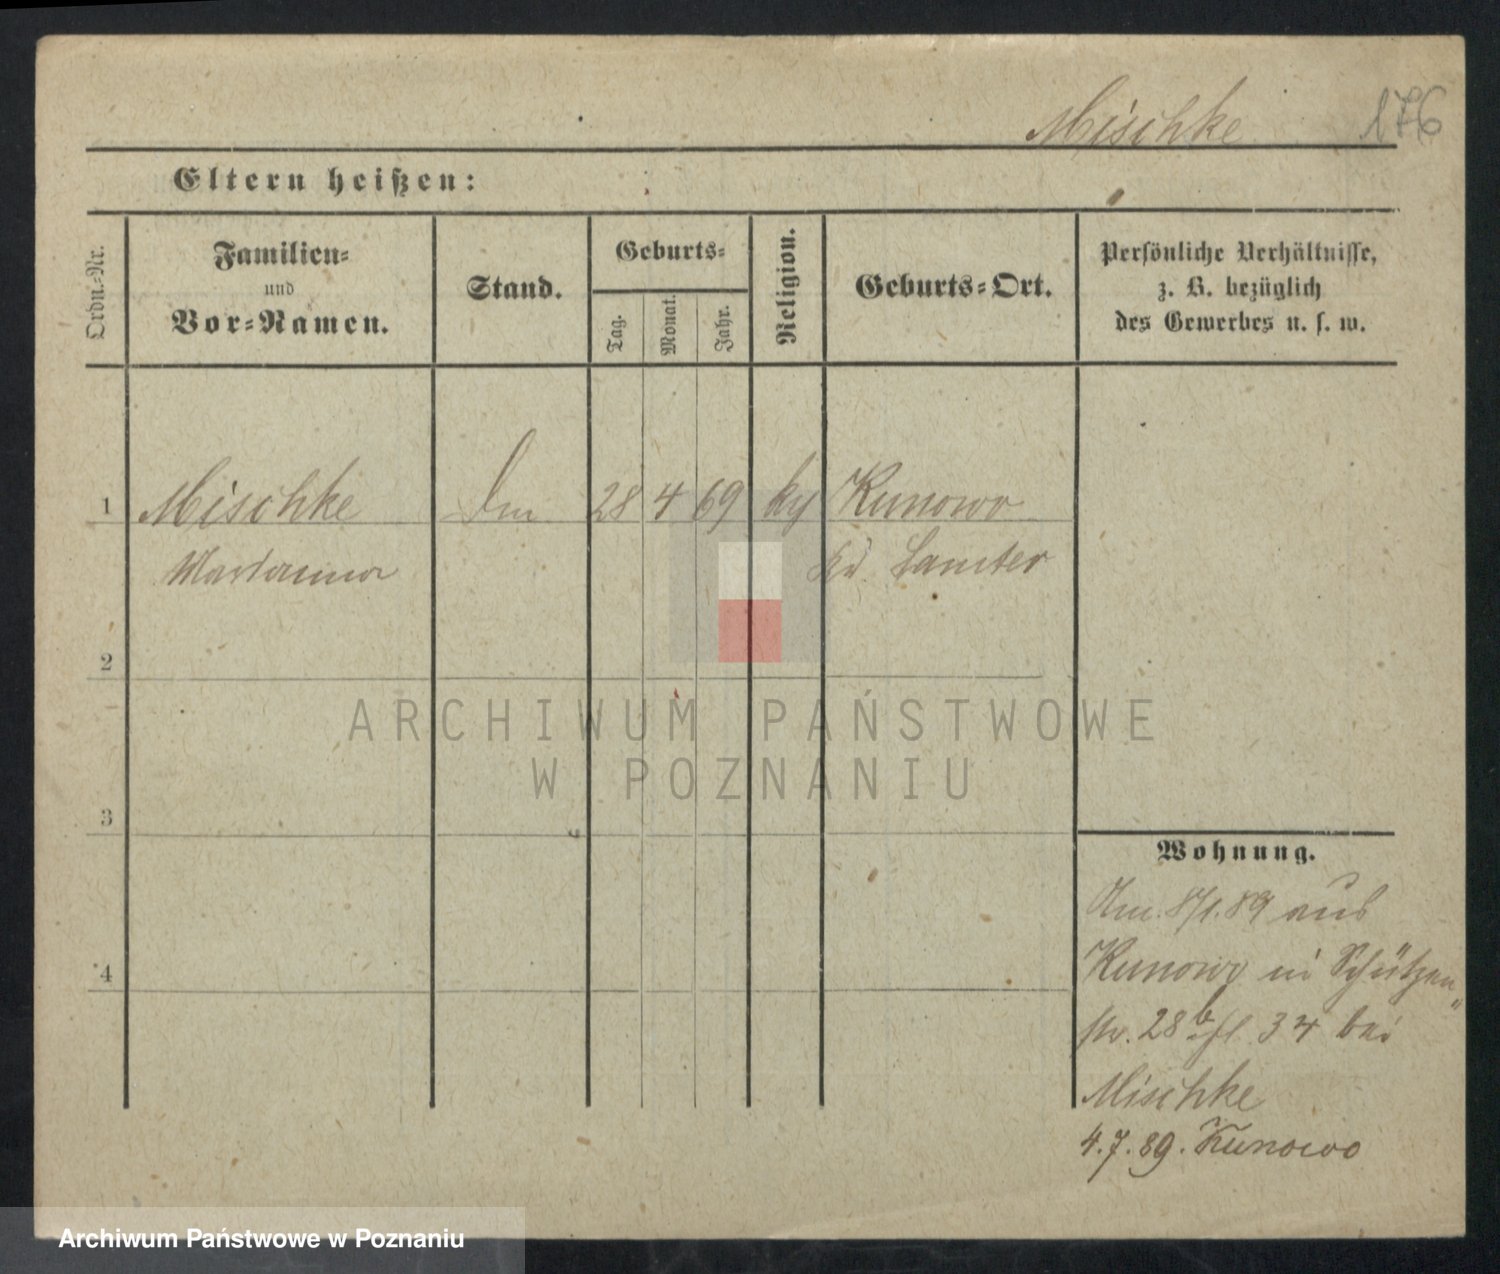 Mischke 176
Eltern heißen:
Ordn.-Nr.
Familien-
und
Vor-Namen.
Stand.
Geburts-
Tag.
Monat.
Jahr.
Religion.
Geburts-Ort.
Persönliche Verhältnisse,
z. B. bezüglich
des Gewerbes u. s. w.
1 Mischke 28 4 69 Kunowo
Marianna Kr. Samter
2
3
4
Wohnung.
Am. 8/1. 89 aus
Kunowo in Schützen
str. 28 b bei
Mischke
4.7.89. Kunowo
ARCHIWUM PAŃSTWOWE
W POZNANIU
Archiwum Państwowe w Poznaniu